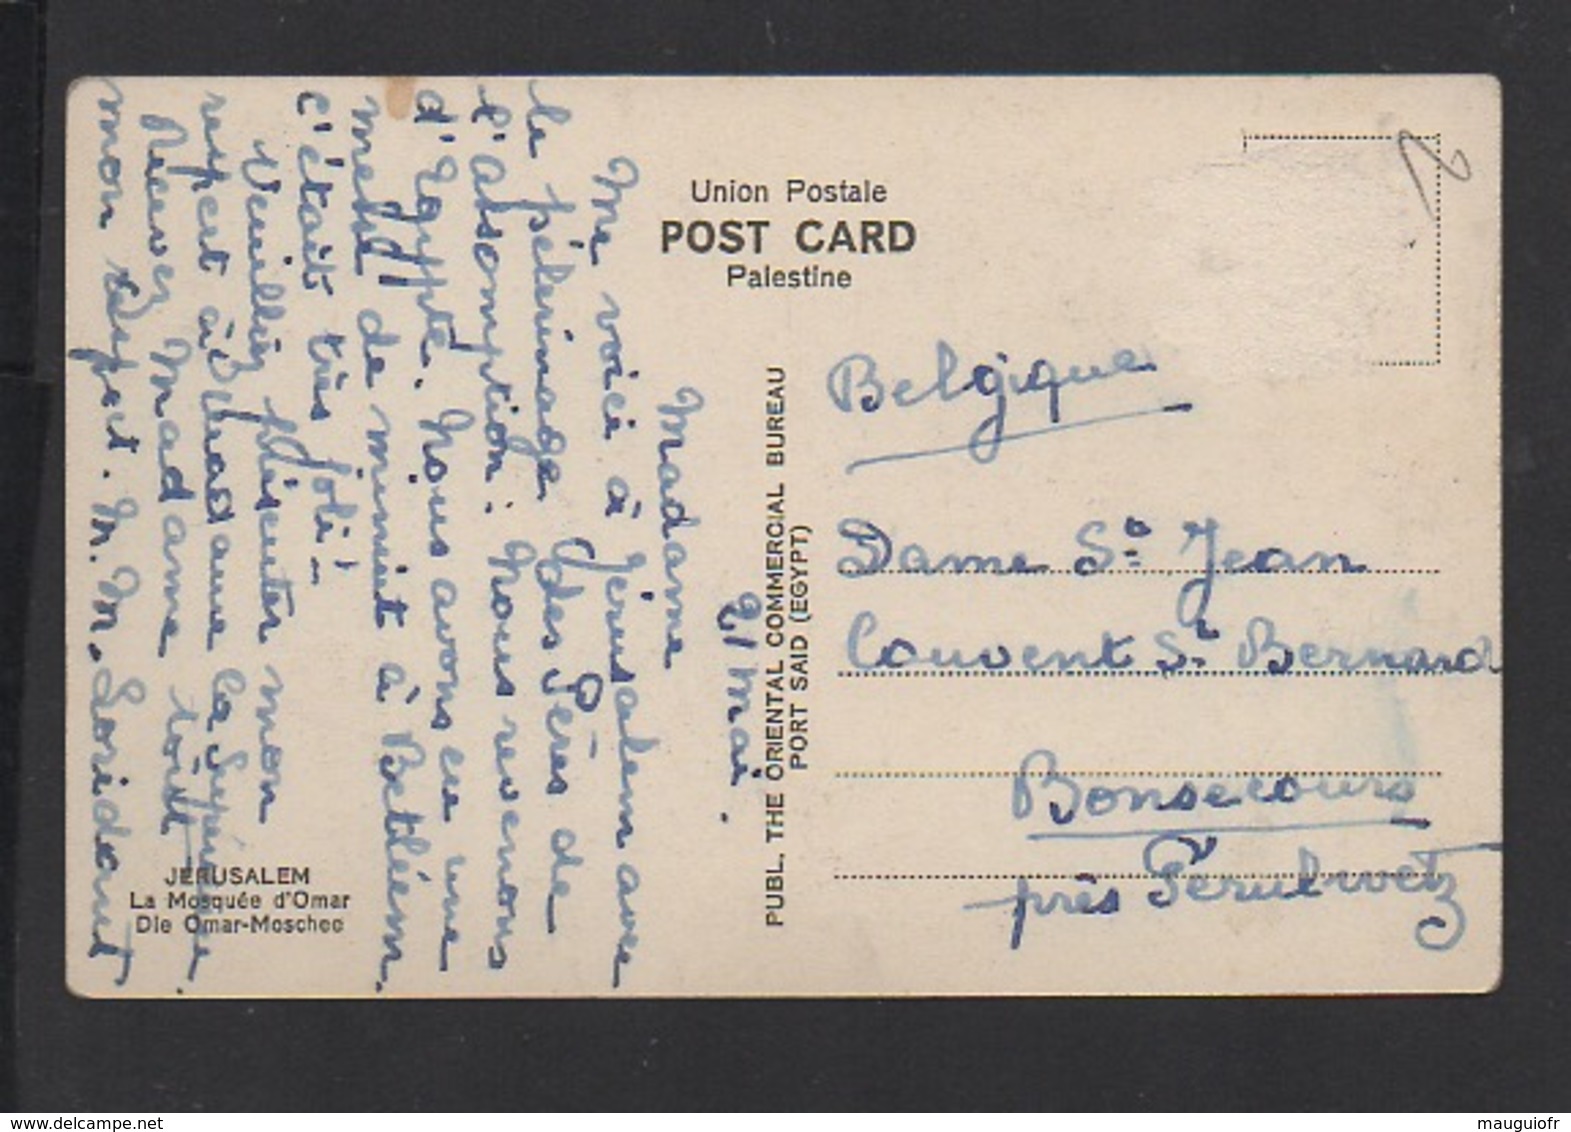 Union Postale
POST CARD
Palestine
21 mai.
Madame
Me voici à Jérusalem avec
le pélerinage des Pères de
l'absomption. Nous revenons
d'Egypte. Nous avons eu une
messe de minuit à Betléem.
c'était très joli –
Veuillez présenter mon
respect à Madame la Supérieure.
Recevez Madame tout
mon respect. M. M. Loridant
JERUSALEM
La Mosquée d'Omar
Die Omar-Moschee
PUBL. THE ORIENTAL COMMERCIAL BUREAU
PORT SAID (EGYPT)
Belgique
Dame St Jean
Couvent St Bernard
Bonsecours
près Péruhwetz
www.delcampe.net
mauguiofr